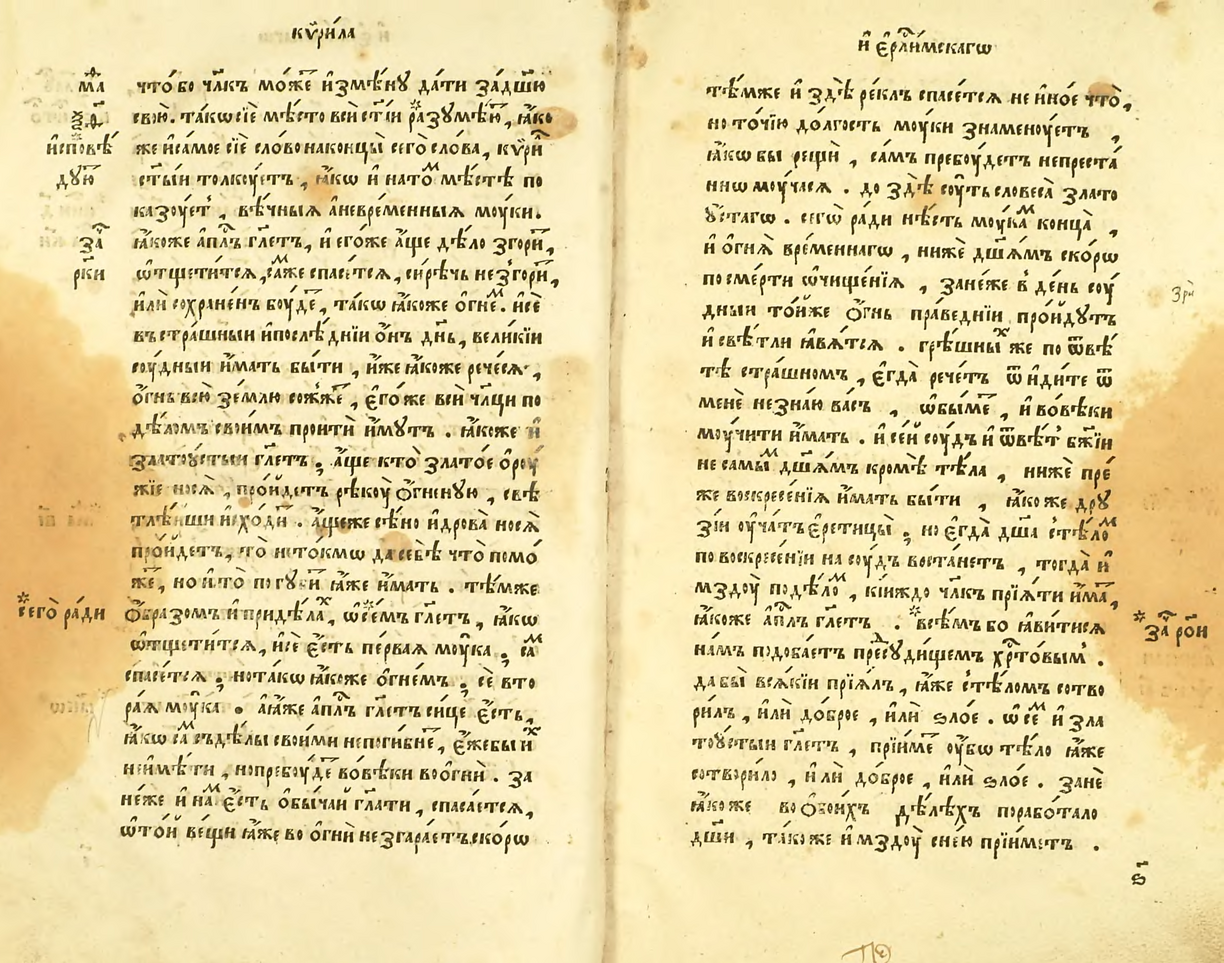 кѷри́ла
что́ бо чл҃къ мо́же и҆змѣ́нꙋ да́ти за́дш҃ю
свою̀. та́кѡ сїѐ мѣ́сто всѝ ст҃і́и разꙋмѣ́ю, ꙗ҆́ко
же и҆самое сїѐ сло́во наконцы̀ сего̀ сло́ва, кѷри́
ст҃ы́и толкꙋ́етъ, ꙗ҆́кѡ и҆ нато́ мѣ́стѣ по
казоу́етъ, вѣ́чныѧ а҆невре́менныѧ моу́ки.
ꙗ҆́коже а҆пл҃ъ гл҃етъ, и҆ его́же а҆́ще дѣ́ло згори́,
ѡ҆тщети́тсѧ, са́же спасе́тсѧ, си́рѣчь незгори́,
и҆лѝ сохране́нъ боу́де, та́кѡ ꙗ҆́коже о҆гне́. и҆сѐ
въ стра́шныи и҆после́днїи о҆́нъ дн҃ь, вели́кїи
соу́дныи и҆́мать бы́ти, и҆́же ꙗ҆́коже рече́сѧ,
о҆́гнь всю̀ зе́млю сожже́, є҆го́же всѝ чл҃цы по
дѣ́ломъ свои́мъ проитѝ и҆́мꙋтъ. ꙗ҆́коже и҆
златоꙋстыи гл҃етъ, а҆́ще кто̀ злато́е о҆роу́
жїе носѧ̀, про́идетъ рѣкоу̀ о҆́гненꙋю, свѣ
тлѣ́иши и҆схо́ди. а҆́щеже сѣ́но и҆дрова̀ носѧ̀
про́идетъ, то̀ нетокмѡ̀ да себѣ̀ что̀ помо́
же, но и҆ то̀ погꙋби ꙗ҆́же и҆́мать. тѣ́мже
о҆́бразомъ и҆ придѣ́ла, ѡ҆ се́мъ гл҃етъ, ꙗ҆́кѡ
ѡ҆тщети́тсѧ, и҆сѐ є҆́сть пе́рваѧ моу́ка. са́
спасе́тсѧ, нота́кѡ ꙗ҆́коже о҆гне́мъ. сѐ вто
ра́ѧ моу́ка. а҆ ꙗ҆́же а҆пл҃ъ гл҃етъ си́це є҆́сть,
ꙗ҆́кѡ са́ съдѣ́лы свои́ми непоги́бне, є҆́жебы и҆
неимѣ́ти, нопребоу́де во́вѣки воо҆гнѝ. за
не́же и҆ на́ є҆́сть о҆бы́чаи гл҃ати, спаса́етсѧ,
ѡ҆тои҆ ве́щи ꙗ҆́же во о҆гнѝ незгара́етъ ско́рѡ
мѳ҃а
и҆сповѣ́
дꙋ́ю
за҃
рки
сего̀ ра́ди
и҆ є҆рл҃и́мскагѡ
тѣ́мже и҆ здѣ̀ ре́клъ спасе́тсѧ не ино́е что̀,
но то́чїю до́лгость моу́ки знаменоу́етъ,
ꙗ҆́кѡ бы рещѝ, са́мъ пребоу́детъ непреста́
ннѡ моу́часѧ. до здѣ̀ соу́ть словеса̀ злато
ꙋ҆́стагѡ. сегѡ̀ ра́ди нѣ́сть моука́ конца̀,
и҆ о҆гнѧ̀ вре́меннагѡ, нижѐ дш҃ѧ́мъ ско́рѡ
по сме́рти ѡ҆чище́нїѧ, зане́же в де́нь соу́
дныи то́иже о҆́гнь пра́веднїи про́идꙋтъ
и҆ свѣ́тли ꙗ҆вѧ́тсѧ. грѣ́шны же по ѿвѣ́
тѣ стра́шномъ, є҆гда̀ рече́тъ ѿидите ѿ
менѐ незна́ю ва́съ, ѡ҆бы́ме, и҆ во́вѣки
моу́чити и҆́мать. и҆ се́й соу́дъ и҆ ѿвѣ́тъ бж҃їи
не самы́ дш҃ѧ́мъ кромѣ̀ тѣ́ла, нижѐ пре́
же воскресе́нїѧ и҆́мать бы́ти, ꙗ҆́коже дрꙋ
зі́и оу҆ча́тъ є҆ретицы̀, но є҆гда̀ дш҃а с тѣ́ло
по воскресе́нїи на соу́дъ воста́нетъ, тогда̀ и҆
мздоу̀ подѣ́ло, кїиждо чл҃къ прїѧ́ти и҆́ма,
ꙗ҆́коже а҆пл҃ъ гл҃етъ. всѣ́мъ бо ꙗ҆ви́тисѧ
на́мъ подоба́етъ пресꙋди́щемъ хр҃то́вым.
да бы̀ всѧ́кїи прїѧ́лъ, ꙗ҆́же с тѣ́ломъ сотво
ри́лъ, и҆лѝ до́брое, и҆лѝ ѕло́е. ѡ҆ се́ и҆ зла
тоꙋ́стыи гл҃етъ, прїи́ме оу҆́бѡ тѣ́ло ꙗ҆́же
сотвори́ло, и҆лѝ до́брое, и҆лѝ ѕло́е. занѐ
ꙗ҆́коже во о҆бои́хъ дѣ́лѣхъ порабо́тало
дш҃и, та́коже и҆ мздоу̀ снею прїи́метъ.
зрѝ
за҃ рѳ҃и
ѕ҃